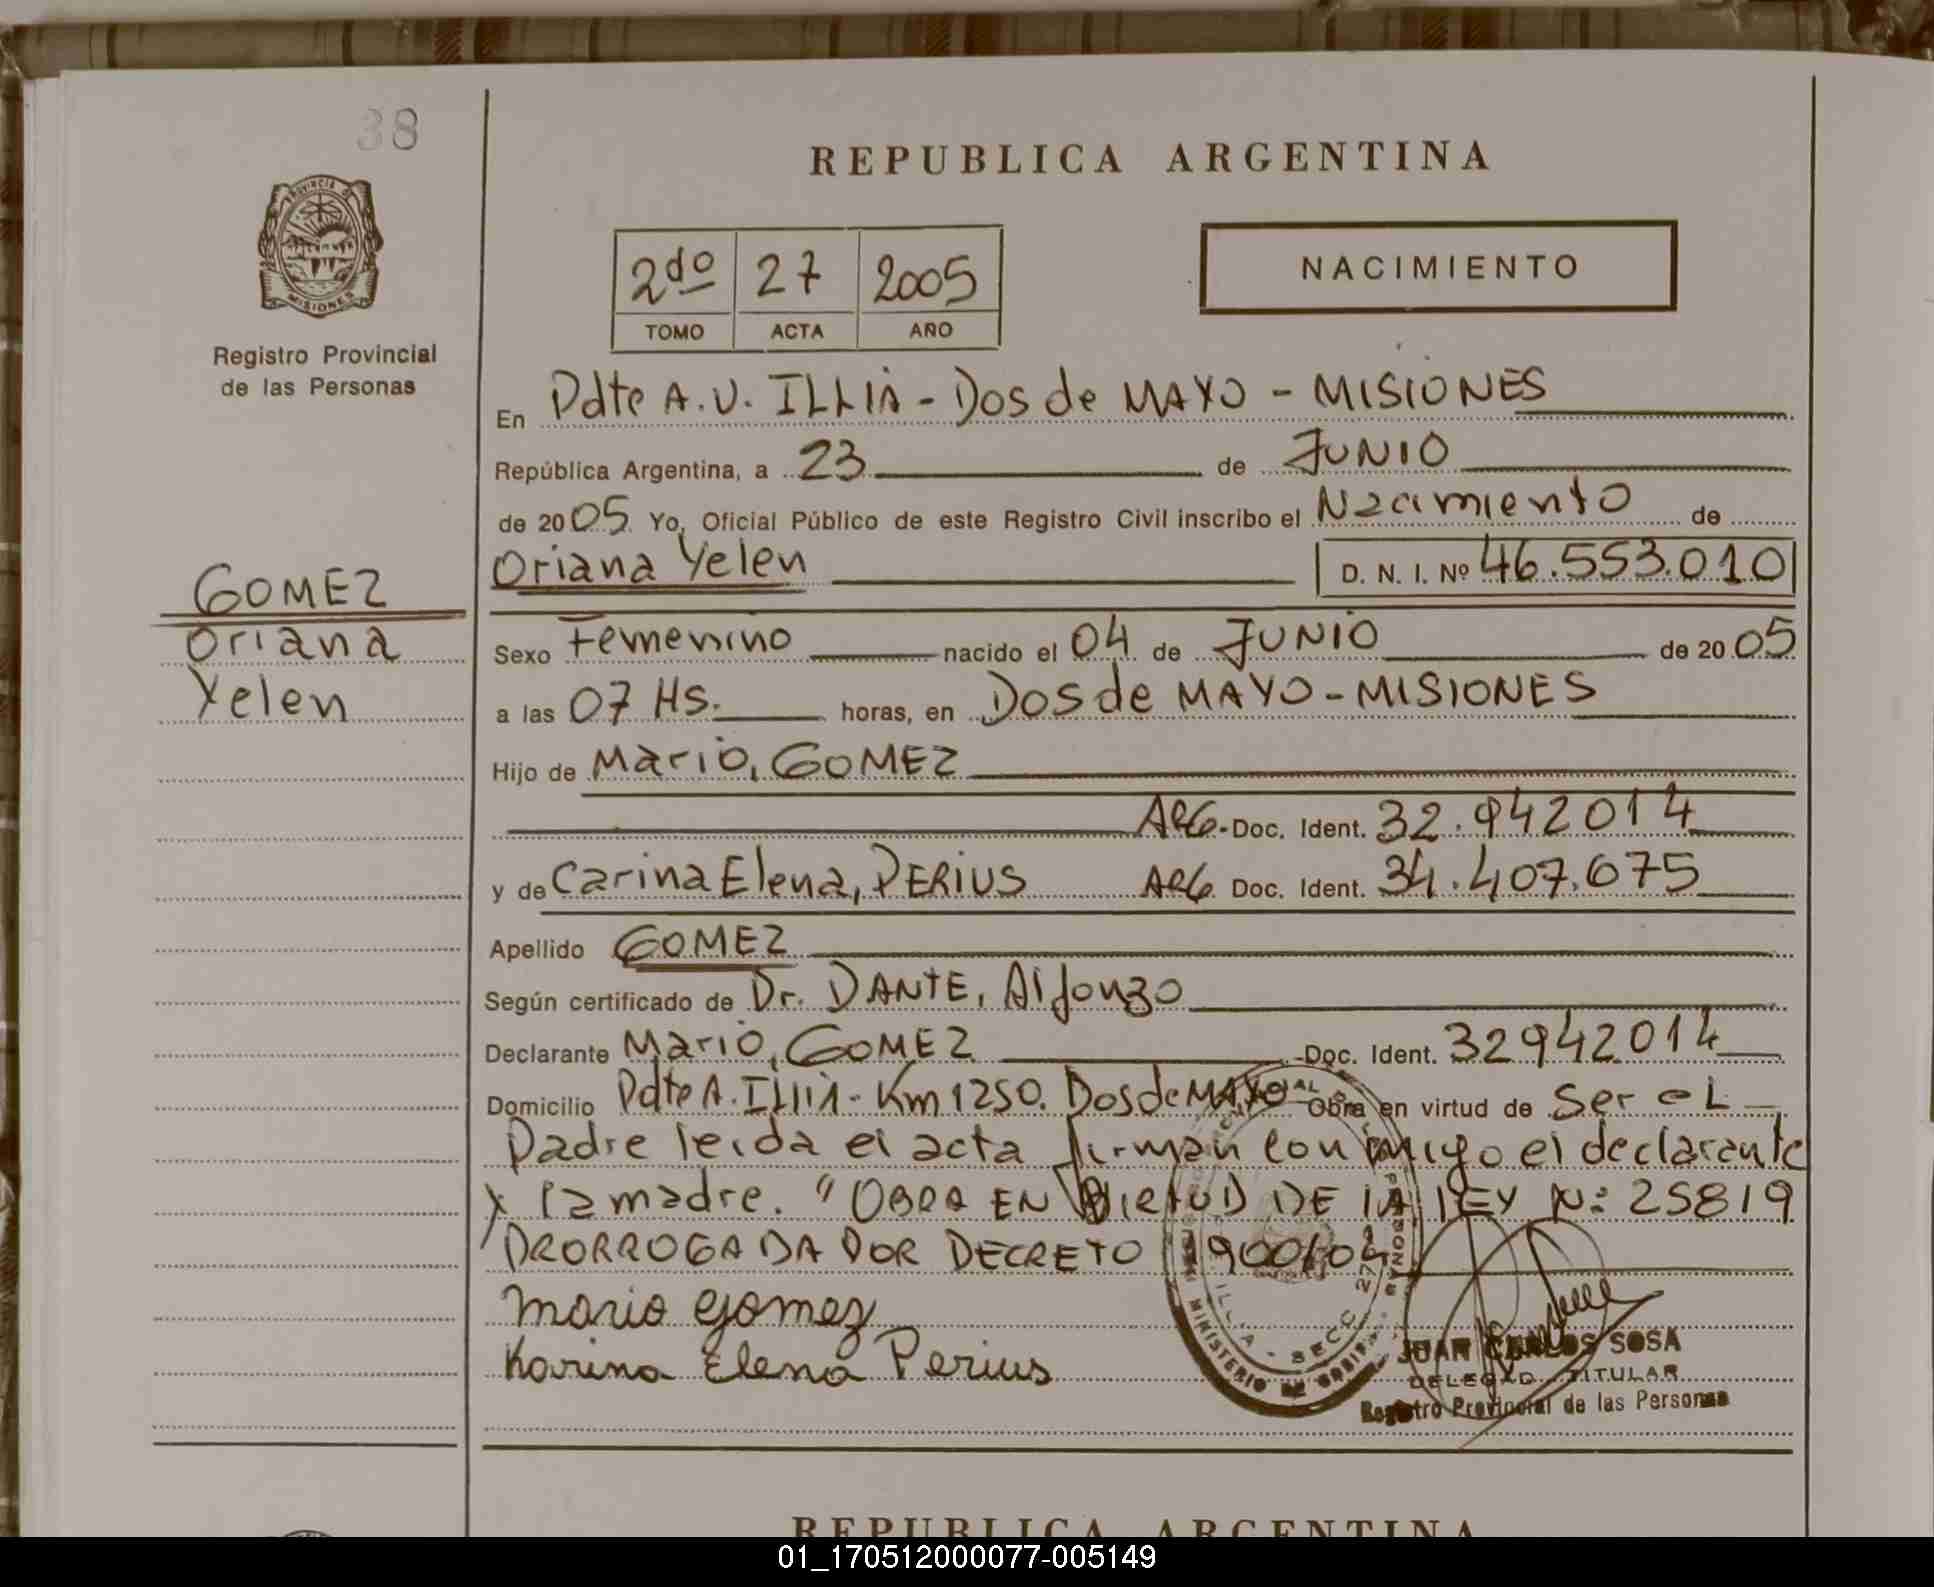 38
REPUBLICA ARGENTINA
PROVINCIA DE
MISIONES
2do 27 2005
TOMO ACTA AÑO
NACIMIENTO
Registro Provincial
de las Personas
En Pdte A.U. ILLIA - Dos de MAYO - MISIONES
República Argentina, a 23 de JUNIO
de 2005 Yo, Oficial Público de este Registro Civil inscribo el Nacimiento de
Oriana Yelen D. N. I. Nº 46.553.010
GOMEZ
Oriana
Yelen
Sexo Femenino nacido el 04 de JUNIO de 2005
a las 07 Hs. horas, en Dos de MAYO - MISIONES
Hijo de Mario, GOMEZ
ARG. Doc. Ident. 32.942014
y de Carina Elena, PERIUS ARG Doc. Ident. 34.407.675
Apellido GOMEZ
Según certificado de Dr. DANTE, Alfonzo
Declarante Mario, GOMEZ Doc. Ident. 32942014
Domicilio Pdte A. Illia - Km 1250. Dos de MAYO Obra en virtud de Ser eL
Padre leida el acta firman conmigo el declarante
y la madre. "OBRA EN VIRTUD DE LA LEY Nº 25819
PRORROGADA POR DECRETO 1900/04
Mario Gomez
Karina Elena Perius
MINISTERIO DE
ILLIA - SECC.
JUAN CARLOS SOSA
DELEGADO TITULAR
Registro Provincial de las Personas
REPUBLICA ARGENTINA
01_170512000077-005149